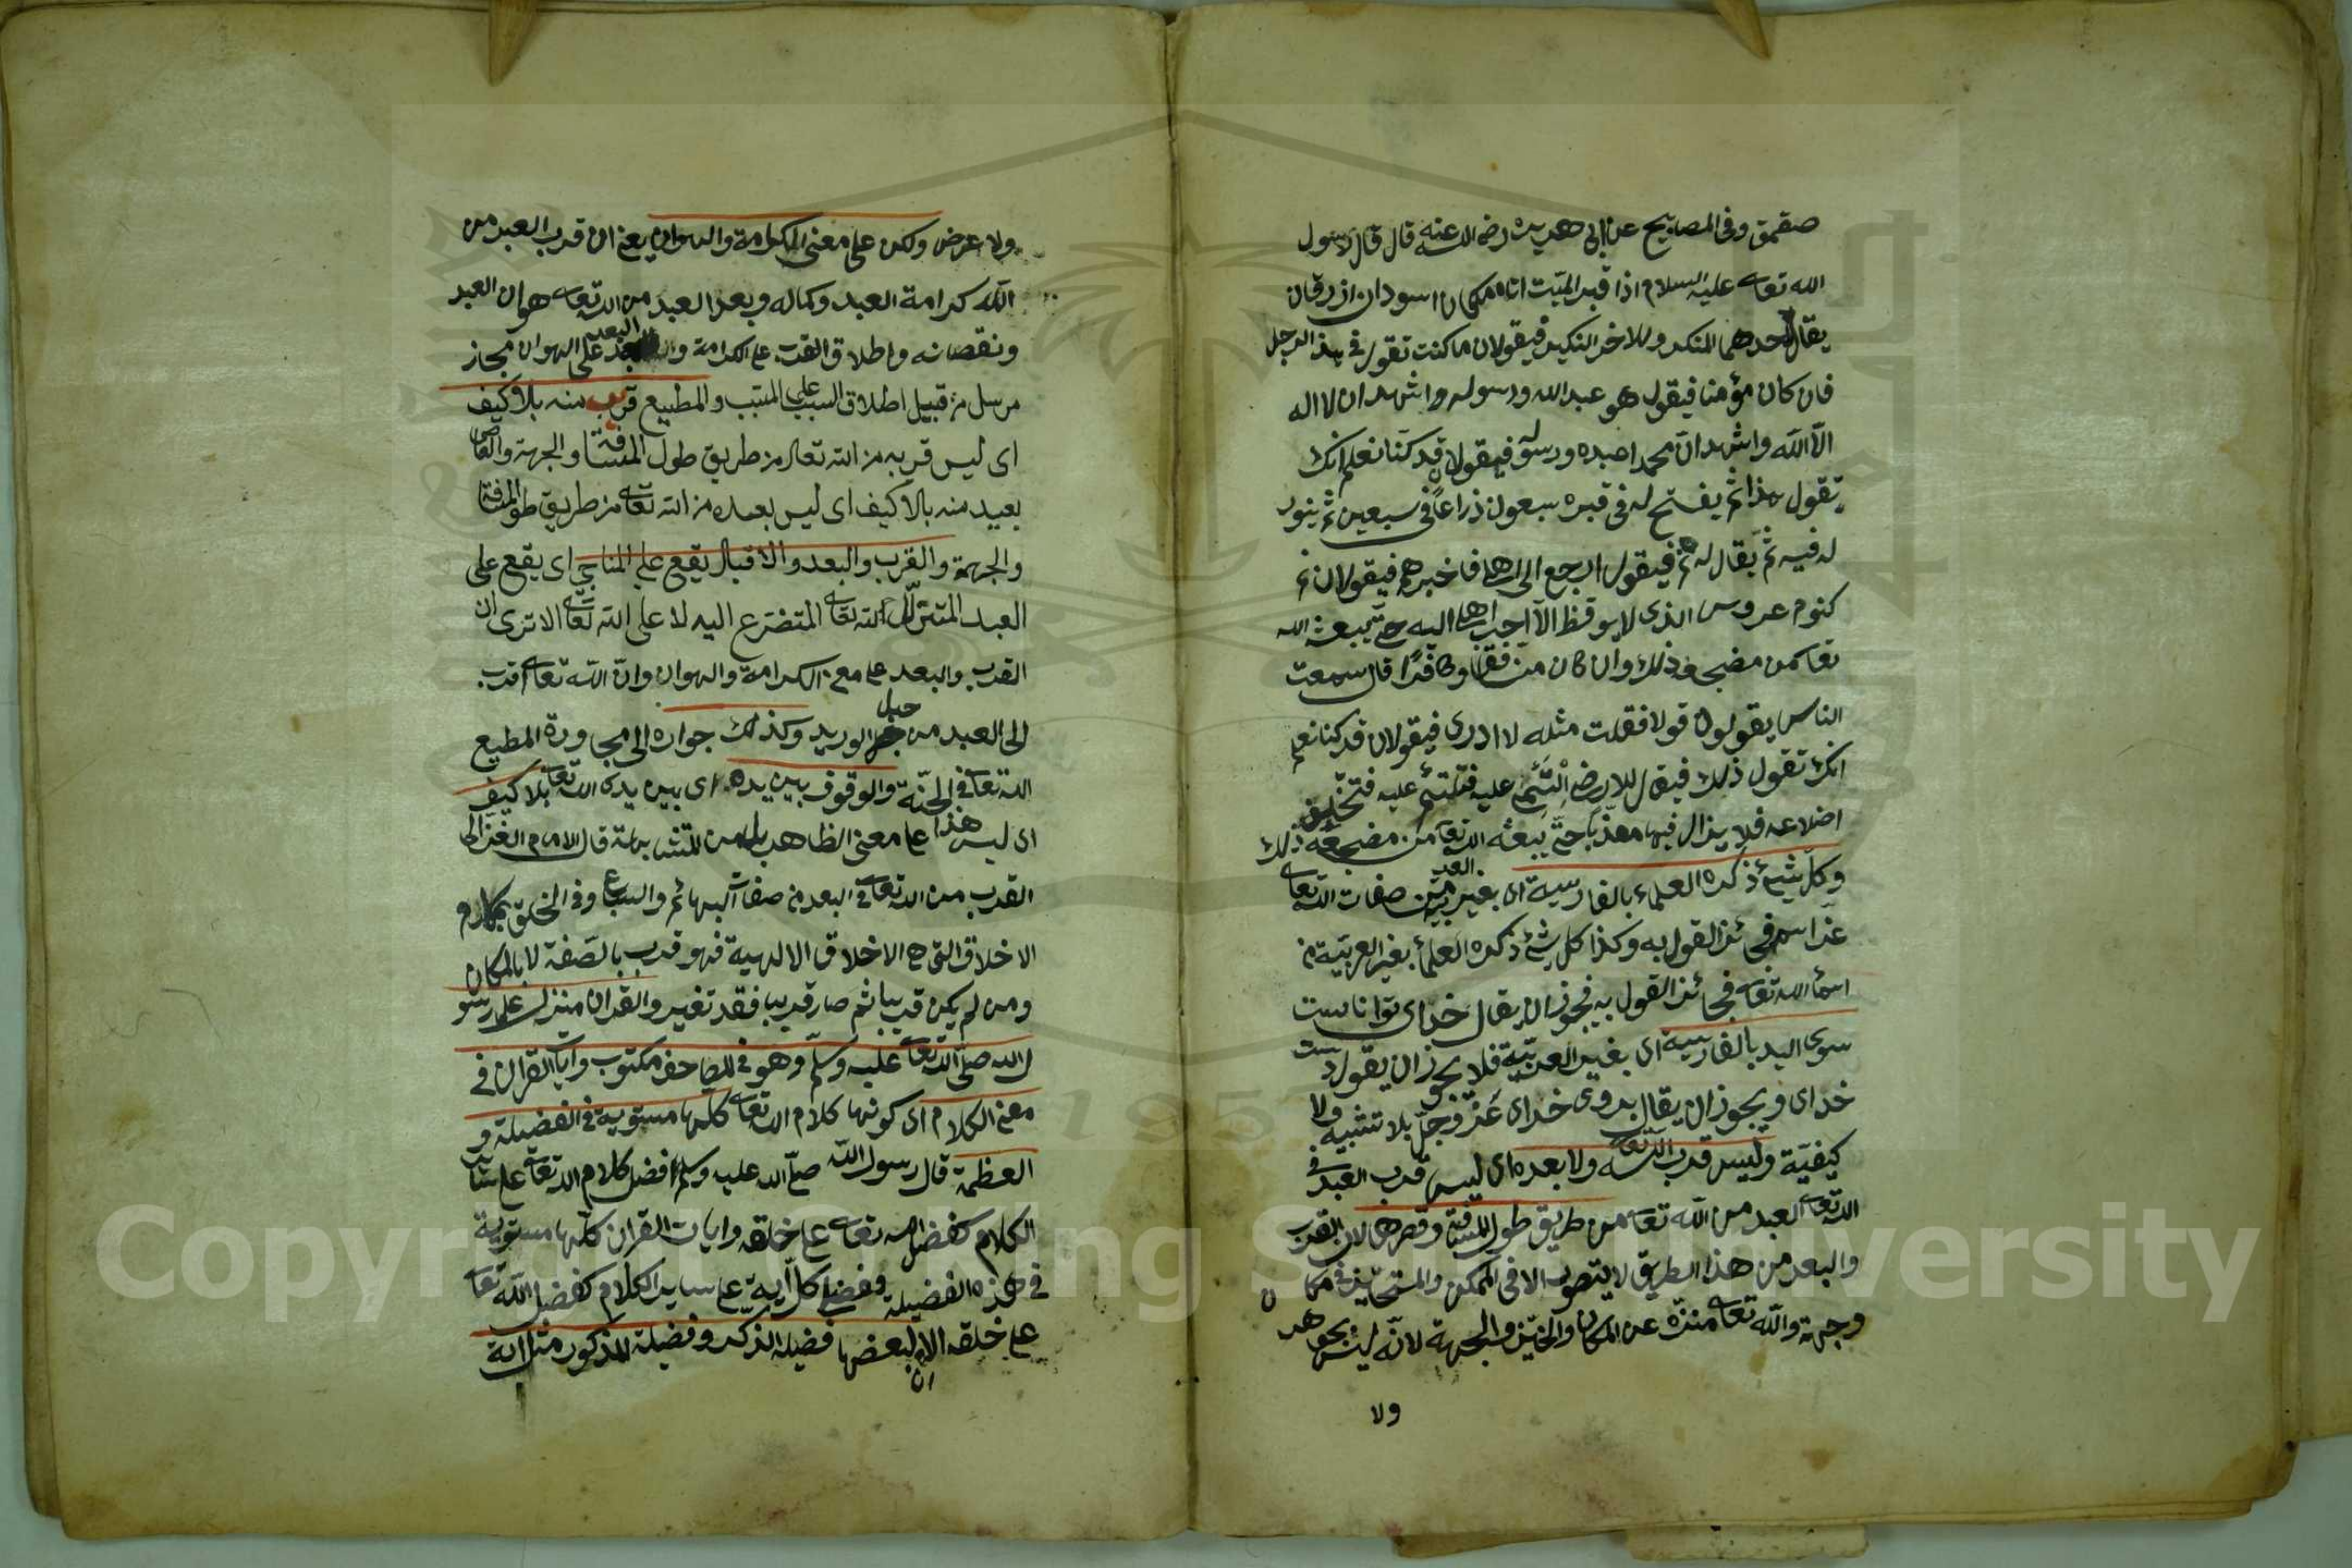 صقمق وفي المصابيح عن ابي هريرة رضي الله عنه قال قال رسول
الله تعالى عليه السلام اذا قبر الميت اتاه ملكان اسودان ازرقان
يقال لاحدهما المنكر وللاخر النكير فيقولان ما كنت تقول في هذا الرجل
فان كان مؤمنا فيقول هو عبد الله ورسوله واشهد ان لا اله
الا الله واشهد ان محمدا عبده ورسوله فيقولان قد كنا نعلم انك
تقول هذا ثم يفتح له في قبره سبعون ذراعا في سبعين ثم ينور
له فيه ثم يقال له نم فيقول ارجع الى اهلي فاخبرهم فيقولان نم
كنوم عروس الذي لا يوقظ الا احب اهله اليه حتى يبعثه الله
تعا من مضجعه ذلك وان كان منافقا او كافرا قال سمعت
الناس يقولون قولا فقلت مثله لا ادري فيقولان قد كنا نعلم
انك تقول ذلك فيقال للارض التئمي عليه فتلتئم عليه فتختلف
اضلاعه فلا يزال فيها معذبا حتى يبعثه الله تعا من مضجعه ذلك
وكل شيء ذكره العلماء بالفارسية اى بغير العربية من صفات الله تعالى
عز اسمه فجائز القول به وكذا كل شيء ذكره العلماء بغير العربية من
اسماء الله تعالى فجائز القول به فيجوز ان يقال خداى توانا است
سوى اليد بالفارسية اى بغير العربية فلا يجوز ان يقول دست
خداى ويجوز ان يقال بروى خداى عز وجل بلا تشبيه ولا
كيفية وليس قرب الله تعالى ولا بعده اى ليس قرب العبد في
الله تعا العبد من الله تعا من طريق طول المسافة وقصرها لان القرب
والبعد من هذا الطريق لا يتصور الا في الممكن والمتحيز في مكان
وجهة والله تعالى منزه عن المكان والحيز والجهة لانه ليس بجوهر
ولا
ولا عرض ولكن على معنى الكرامة والهوان يعني ان قرب العبد من
الله كرامة العبد وكماله وبعد العبد من الله تعالى هو ان العبد
ونقصانه واطلاق القرب على الكرامة والبعد على الهوان مجاز
مرسل من قبيل اطلاق السبب على المسبب والمطيع قريب منه بلا كيف
اى ليس قربه من الله تعالى من طريق طول المسافة والجهة والعاصى
بعيد منه بلا كيف اى ليس بعده من الله تعالى من طريق طول المسافة
والجهة والقرب والبعد والاقبال يقع على المناجى اى يقع على
العبد المتذلل لله تعالى المتضرع اليه لا على الله تعالى الا ترى ان
القرب والبعد على معنى الكرامة والهوان وان الله تعالى اقرب
الى العبد من حبل الوريد وكذلك جواره الى مجاورة المطيع
الله تعا في الجنة والوقوف بين يديه اى بين يدى الله تعالى بلا كيف
اى ليس هذا على معنى الظاهر بل من المتشابهات قال الامام الغزالى
القرب من الله تعالى في البعد من صفات البهائم والسباع وفي التخلق بمكارم
الاخلاق التى هى الاخلاق الالهية فهو قرب بالصفة لا بالمكان
ومن لم يكن قريبا ثم صار قريبا فقد تغير والقران منزل على رسو
ل الله صلى الله تعالى عليه وسلم وهو في المصاحف مكتوب وايات القران في
معنى الكلام اى كونها كلام الله تعالى كلها مستوية في الفضيلة و
العظمة قال رسول الله صلى الله عليه وسلم افضل كلام الله تعالى على سائر
الكلام كفضل الله تعالى على خلقه وايات القران كلها مستوية
في هذه الفضيلة وفضل كل آية على ساير الكلام كفضل الله تعالى
على خلقه الا ان لبعضها فضيلة الذكر وفضيلة المذكور مثل اية
Copyright © King Saud University
195